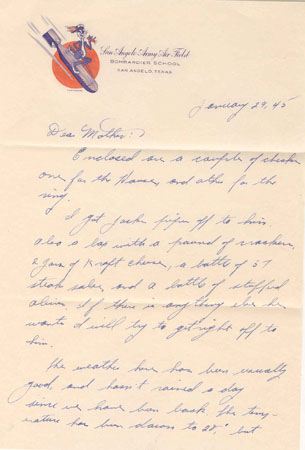 San Angelo Army Air Field
BOMBARDIER SCHOOL
SAN ANGELO, TEXAS
January 29, 45
Dear Mother:
Enclosed are a couple of checks
one for the House, and other for the
ring.
I got Jackie off to him
also a box with a pound of crackers
2 jars of Kraft cheese, a bottle of 57
steak sauce, and a bottle of stuffed
olives. If there is anything else he
wants I will try to get right off to
him.
The weather here has been usually
good, and hasn't rained a day
since we have been back. The temp-
erature has been down to 28°, but